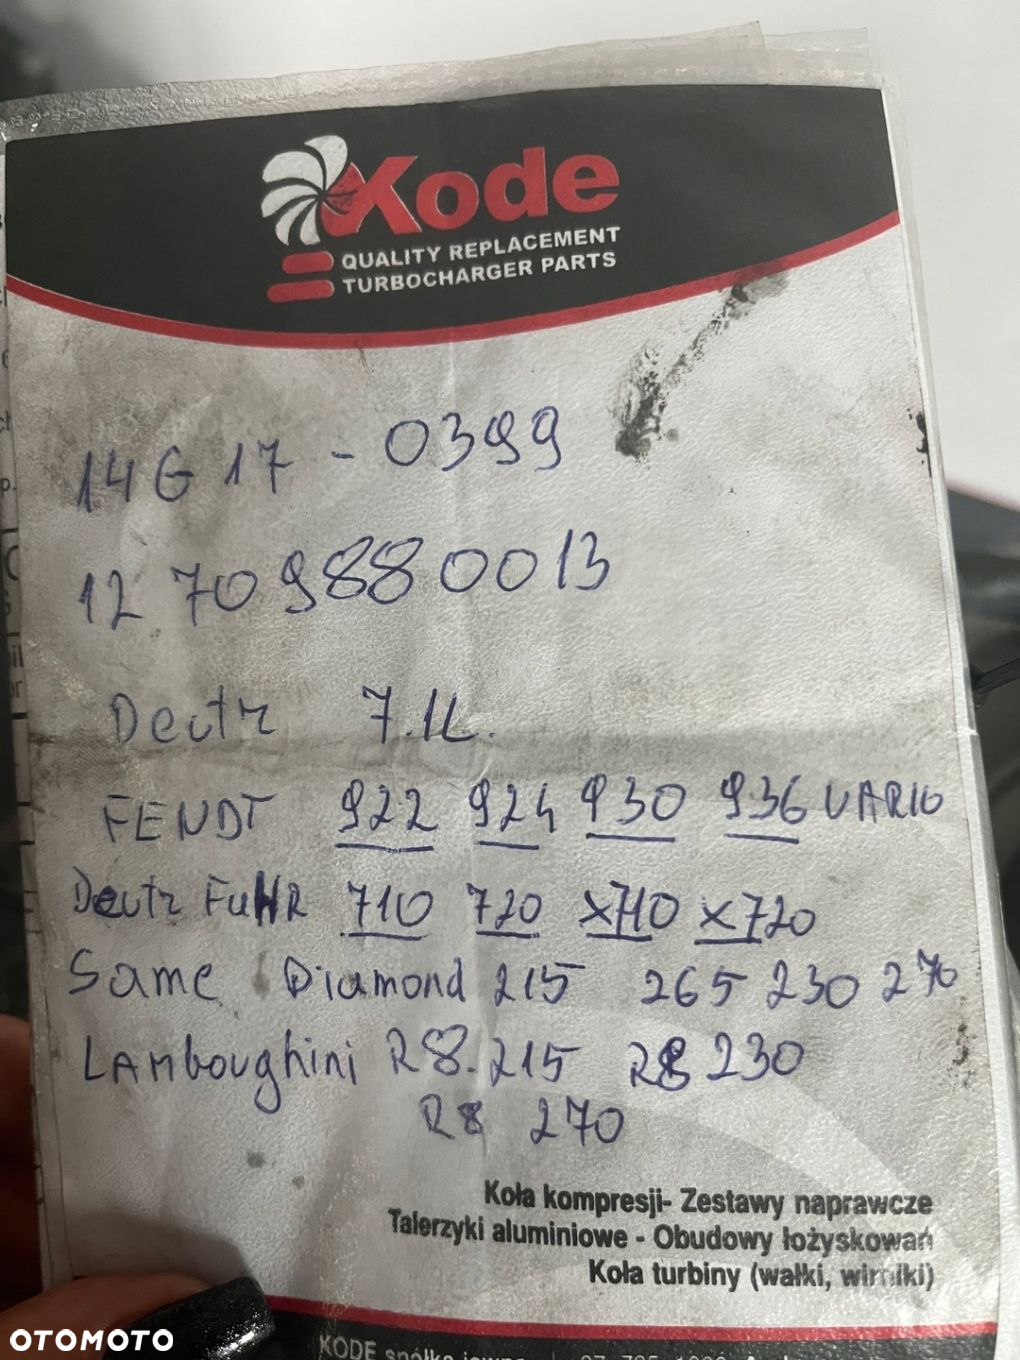 Kode
QUALITY REPLACEMENT
TURBOCHARGER PARTS
14G17-0399
12709880013
Deutz 7.1L.
FENDT 922 924 930 936 VARIO
Deutz FaHR 710 720 x710 x720
Same Diamond 215 265 230 270
LAMbourghini R8.215 R8 230
R8 270
Koła kompresji- Zestawy naprawcze
Talerzyki aluminiowe - Obudowy łożyskowań
Koła turbiny (wałki, wirniki)
KODE spółka jawna
OTOMOTO